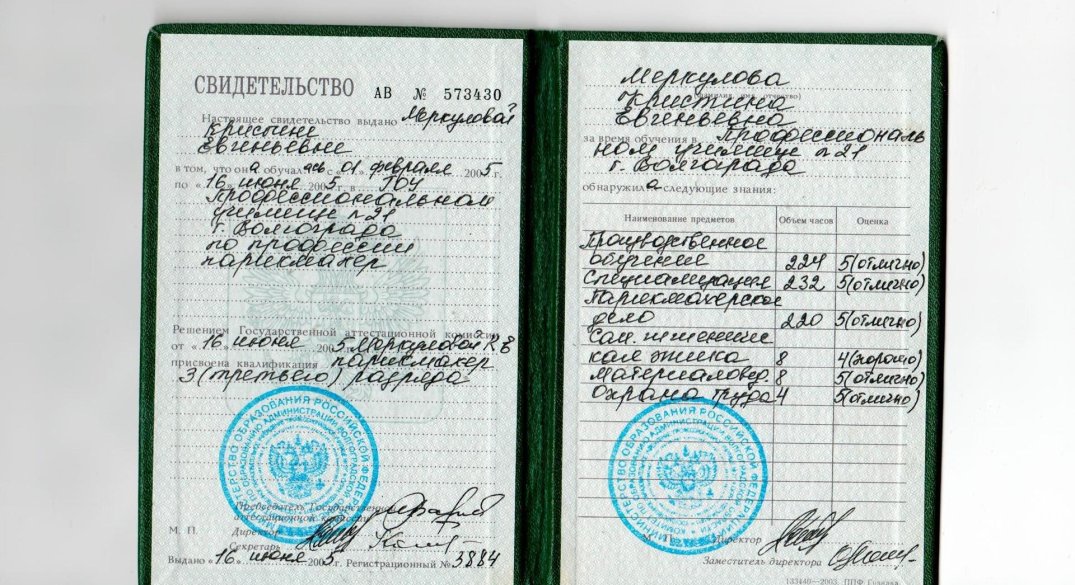 СВИДЕТЕЛЬСТВО АВ № 573430
Настоящее свидетельство выдано Меркуловой
Кристине
Евгеньевне
в том, что она обучалась с « 01 » февраля 2005 г.
по « 16 » июня 2005 г. в ГОУ
Профессиональном
училище №21
г. Волгограда
по профессии
парикмахер
Решением Государственной аттестационной комиссии
от « 16 » июня 2005 Меркуловой К Е
присвоена квалификация парикмахер
3 (третьего) разряда
Председатель Государственной
аттестационной комиссии
М. П. Директор
Секретарь
Выдано « 16 » июня 2005 г. Регистрационный № 3884
Меркулова
Кристина
Евгеньевна
за время обучения в Профессиональ
ном училище №21
г. Волгограда
обнаружила следующие знания:
Наименование предметов Объем часов Оценка
Производственное
обучение 224 5(отлично)
Специализация 232 5(отлично)
Парикмахерское
дело 220 5(отлично)
Сан. и гигиена
кал 8 4(хорошо)
Материаловед. 8 5(отлично)
Охрана труда 4 5(отлично)
М. П. Директор
Заместитель директора